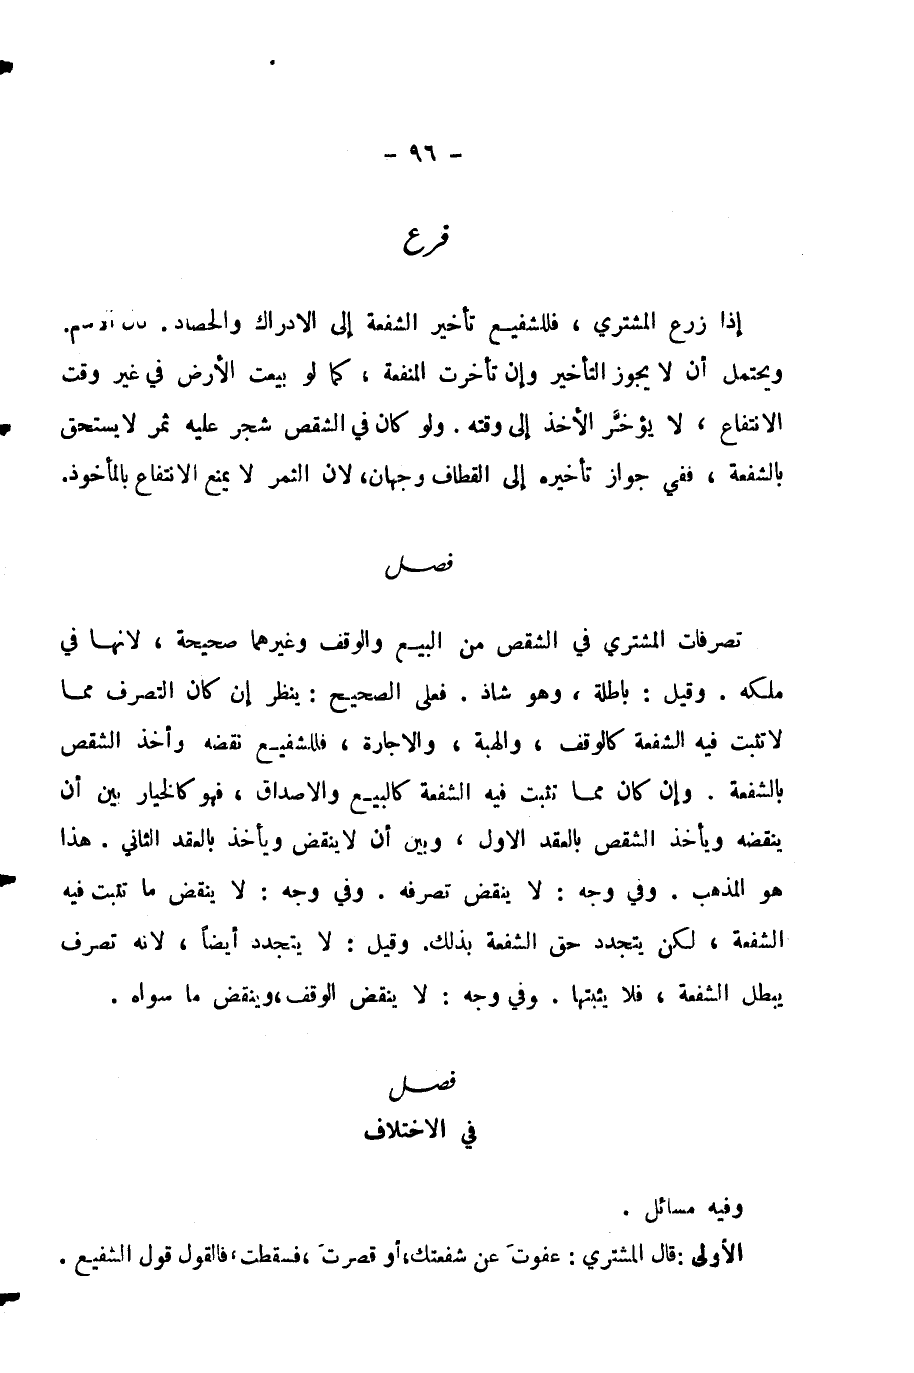 - ٩٦ -
فرع
إذا زرع المشتري ، فللشفيع تأخير الشفعة إلى الادراك والحصاد .
ويحتمل أن لا يجوز التأخير وإن تأخرت المنفعة ، كما لو بيعت الأرض في غير وقت
الانتفاع ، لا يؤخَّر الأخذ إلى وقته . ولو كان في الشقص شجر عليه ثمر لا يستحق
بالشفعة ، ففي جواز تأخيره إلى القطاف وجهان، لان الثمر لا يمنع الانتفاع بالمأخوذ.
فصل
تصرفات المشتري في الشقص من البيع والوقف وغيرهما صحيحة ، لانها في
ملكه . وقيل : باطلة ، وهو شاذ . فعلى الصحيح : ينظر إن كان التصرف مما
لا تثبت فيه الشفعة كالوقف ، والهبة ، والاجارة ، فللشفيع نقضه وأخذ الشقص
بالشفعة . وإن كان مما تثبت فيه الشفعة كالبيع والاصداق ، فهو كالخيار بين أن
ينقضه ويأخذ الشقص بالعقد الاول ، وبين أن لا ينقض ويأخذ بالعقد الثاني . هذا
هو المذهب . وفي وجه : لا ينقض تصرفه . وفي وجه : لا ينقض ما تثبت فيه
الشفعة ، لكن يتجدد حق الشفعة بذلك. وقيل : لا يتجدد أيضاً ، لانه تصرف
يبطل الشفعة ، فلا يثبتها . وفي وجه : لا ينقض الوقف،وينقض ما سواه .
فصل
في الاختلاف
وفيه مسائل .
الأولى :قال المشتري : عفوتَ عن شفعتك،أو قصرتَ ،فسقطت،فالقول قول الشفيع .